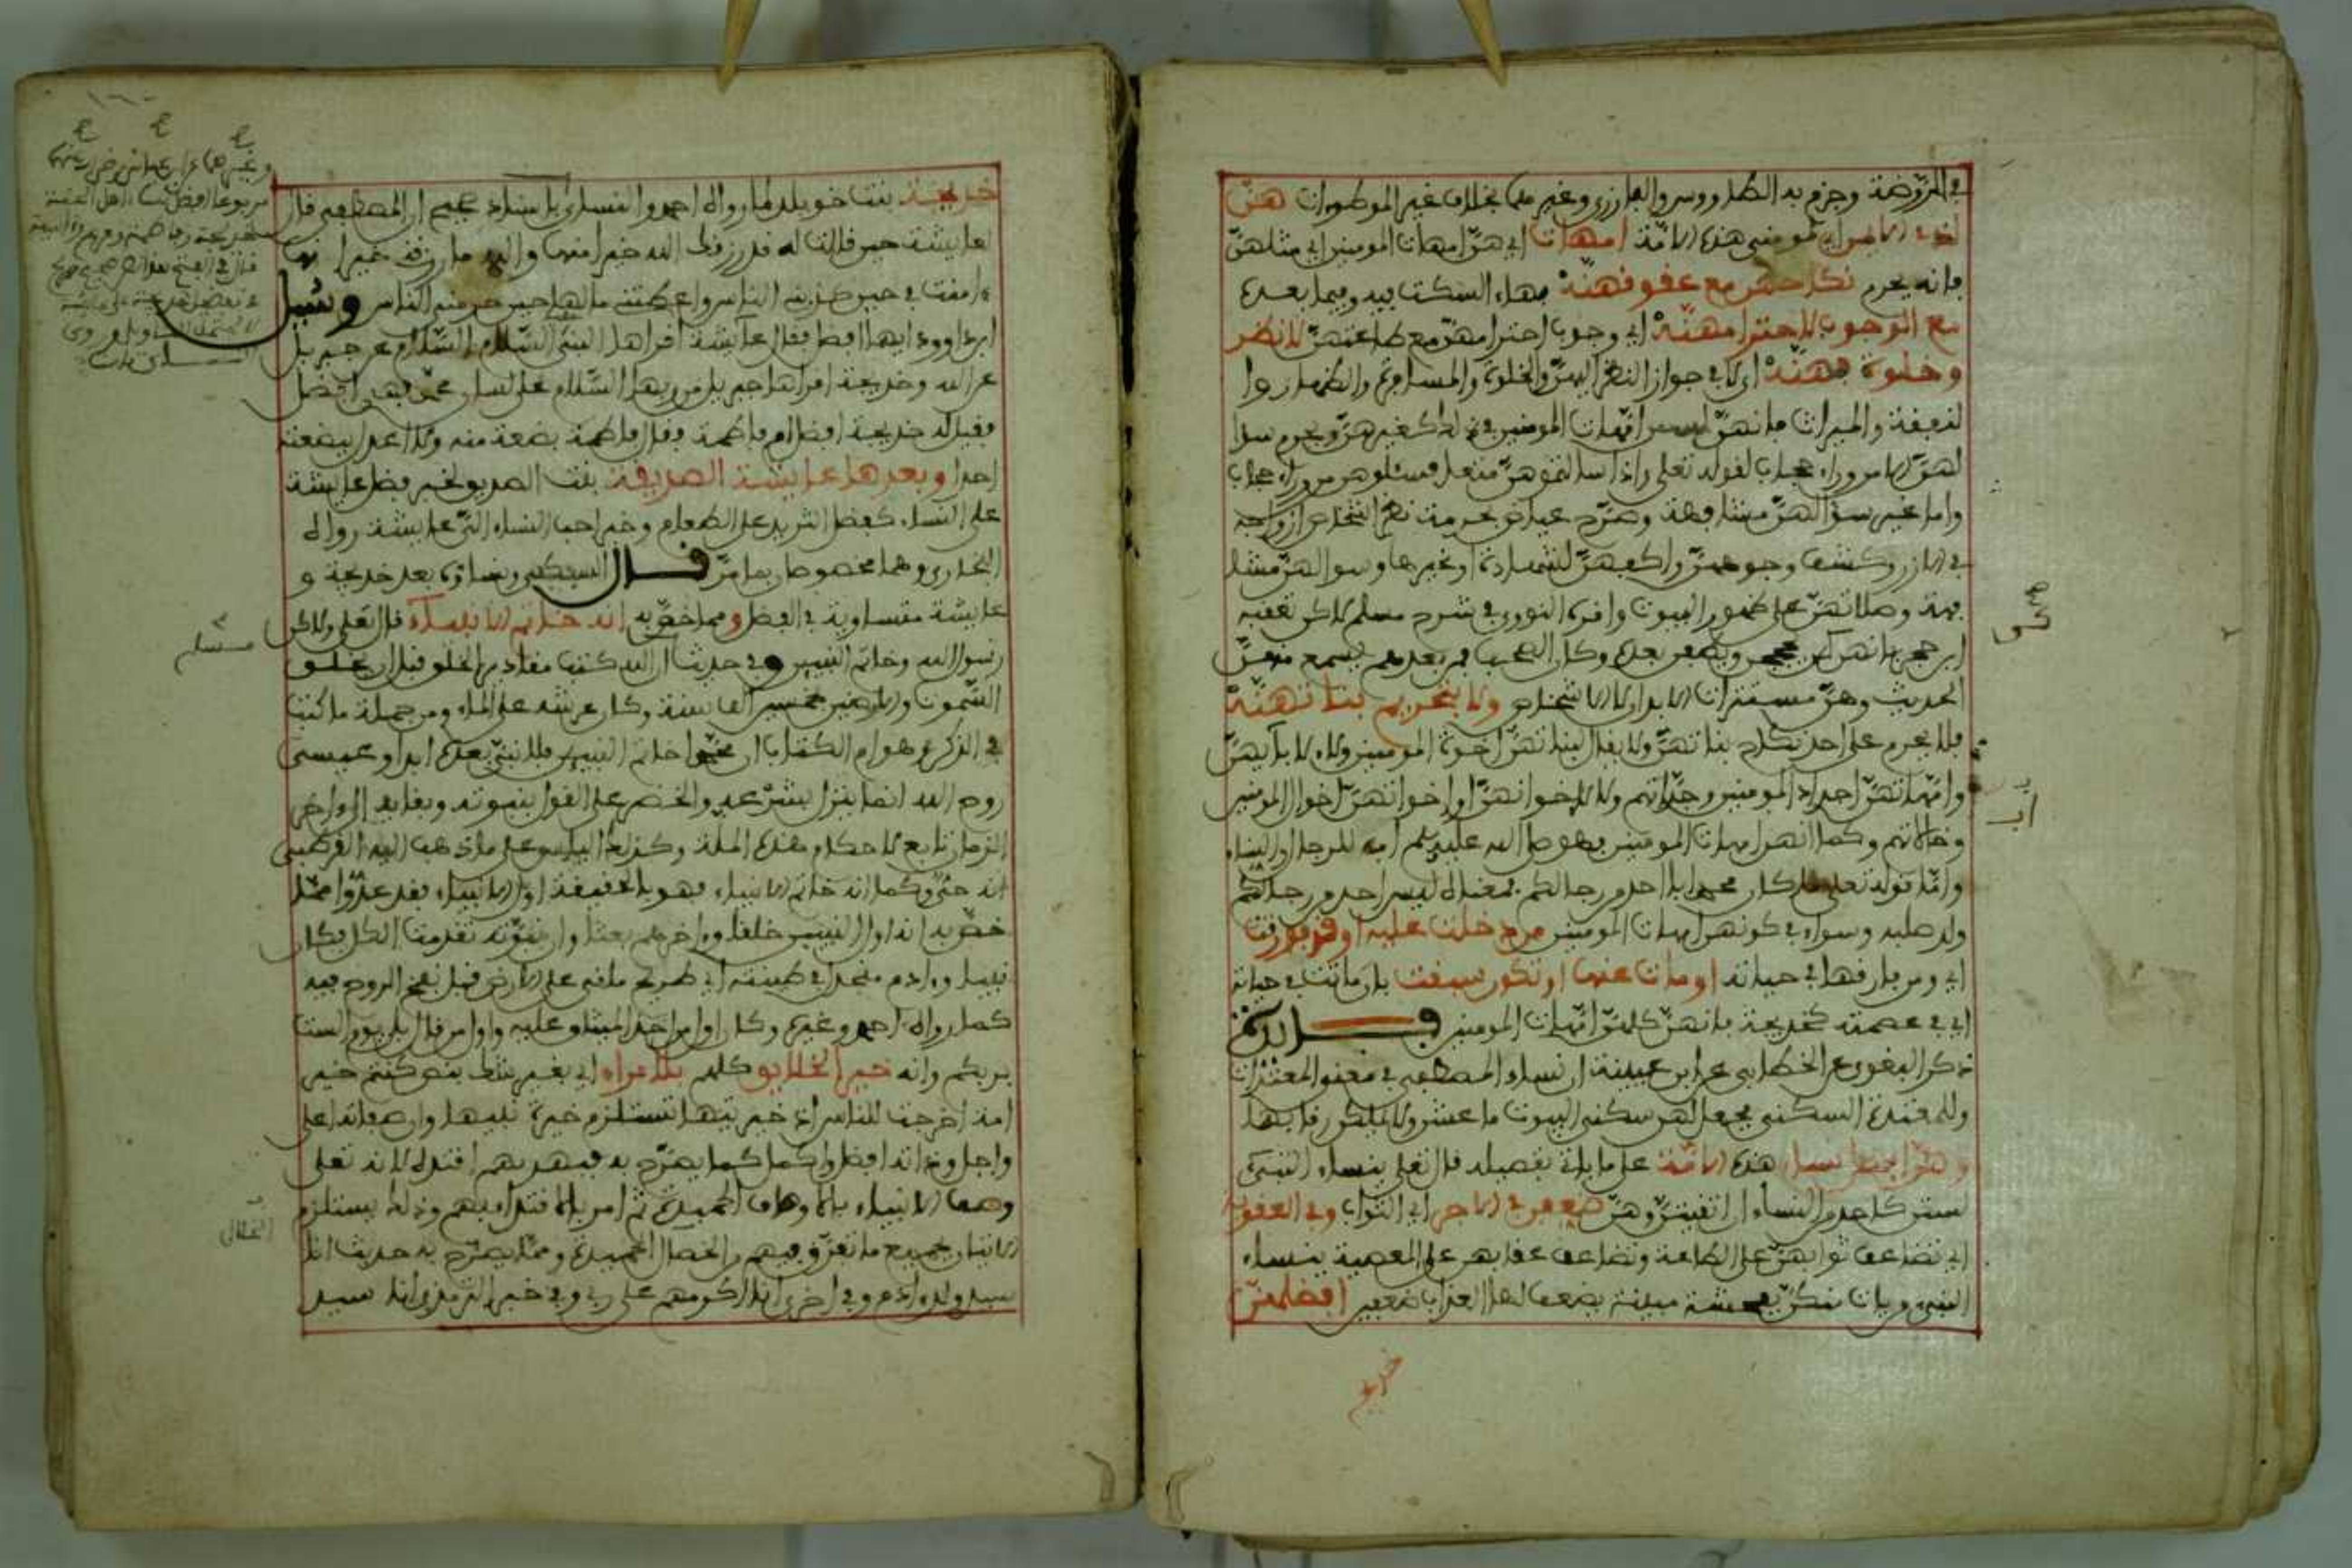 في الروضة وجزم به الطاووسي والبارزي وغيرهما بخلاف غير الموطوءات هنّ
اي مومني هذه الامّة امهات اي هنّ امهات المومنين اي مثلهنّ
فانه يحرم نكاحهن مع عقوقهنّهْ بهاء السكت فيه وفيما بعده
مع الوجوب لاحترامهنّهْ اي وجوب احترامهنّ مع طاعتهنّ لا نظر
وخلوة بهنّهْ اي لا في جواز النظر اليهنّ والخلوة والمسافرة والظهار وا
لنفقة والميراث فانهنّ لسن امّهات المومنين في ذلك كغيرهنّ ويحرم سوا
لهنّ الا من وراء حجاب لقوله تعلى واذا سالتموهنّ متعا فسئلوهن من وراء حجاب
واما غير سوالهنّ مشافهة وصرّح عياض بحرمة نظر اشخاص ازواجه
في الازر وكشف وجوههنّ واكفهنّ لشهادة او غيرها وسوالهنّ مشا
فهة وصلاتهنّ على ظهور البيوت واقره النووي في شرح مسلم لاكن تعقبه
ابن حجر بانهن كن يحججن ويطفن بعده وكان الصحابة فمن بعدهم يسمع منهنّ
الحديث وهنّ مستترات الابدان لا الاشخاص ولا بتحريم بناتهنّهْ
فلا يحرم على احد نكاح بناتهنّ ولا يقال لبناتهنّ اخوة المومنين ولا لابآيهنّ
وامّهاتهنّ اجداد المومنين وجدّاتهم ولا لاخوانهنّ او اخواتهنّ اخوال المومنين
وخالاتهم وكما انهن امهات المومنين فهو صلى الله عليه وسلم اب للرجال والنساء
وامّا قوله تعلى ما كان محمد ابا احد من رجالكم فمعناه ليس احد من رجالكم
ولد صلبه وسواء في كونهن امهات المومنين من دخلت عليه او فورقت
اي ومن فارقها في حياته او مات عنها او تكون سبقت بان ماتت في حياته
اي في عصمته كخديجة فانهنّ كلهنّ امّهات المومنين
ذكر البغوي عن الخطابي عن ابن عيينة ان نساء المصطفى في معنى المعتدات
وللمعتدة السكنى فجعل لهن سكنى البيوت ما عشن ولا يملكن رقابها
وهنّ افضل نساء هذه الامّة على ما ياتي تفصيله قال تعلى ينساء النبيّ
لستن كاحد من النساء ان اتقيتنّ وهنّ ضعفن في الاجر اي الثواب وفي العقوبة
اي تضاعف ثوابهنّ على الطاعة وتضاعف عقابهن على المعصية ينساء
النبي من يات منكنّ بفحشة مبينة يضعف لها العذاب ضعفين افضلهنّ
خديجة
خديجة بنت خويلد لما رواه احمد والنساي باسناد صحيح ان المصطفى قال
لعايشة حين قالت له قد رزقك الله خيرا منها والله ما رزقني خيرا منها
ءامنت بي حين كذبني الناس واعطتني مالها حين حرمني الناس وسُيل
ابن داوود ايهما افضل فقال عآيشة اقراها النبيّ السّلام السّلام عن جبريل
عن الله وخديجة اقراها جبريل من ربها السّلام على لسان محمّد فهي افضل
فقيل له خديجة افضل ام فاطمة فقال فاطمة بضعة منه ولا اعدل ببضعته
احدا وبعدها عايشة الصديقة بنت الصديق لخبر فضل عايشة
على النساء كفضل الثريد على الطعام وخبر احب النساء اليّ عايشة رواه
البخاري وهما مخصوصان بما مرّ قال السبكي ونساؤه بعد خديجة و
عايشة متساوية في الفضل ومما خصّ به انه خاتم الانبيآء قال تعلى ولاكن
رسول الله وخاتم النبيين وفي حديث ان الله كتب مقادير الخلق قبل ان يخلق
السّموات والارضين بخمسين الف سنة وكان عرشه على الماء ومن جملة ما كتب
في الذكر وهو ام الكتاب ان محمّدا خاتم النبيين فلا نبيّ بعده ابدا وعيسى
روح الله انما ينزل بشرعه والخضر على القول بنبوته وبقايه الى ءاخر
الزمان تابع لاحكام هذه الملة وكذلك الياس على ما ذهب اليه القرطبي
انه حيّ وكما انه خاتم الانبياء فهو بالحقيقة اول الانبياء فقد عدّوا ممّا
خصّ به انه اول النبيين خلقا وءاخرهم بعثا وان نبوّته تقدمت الكل فكان
نبيا وءادم منجدل في طينته اي طريح ملقى على الارض قبل نفخ الروح فيه
كما رواه احمد وغيره وكان اول من اخذ الميثاق عليه واول من قال بلى يوم الست
بربكم وانه خير الخلايق كلهم بلا مراء اي بغير شك بنص كنتم خير
امة اخرجت للناس اذ خيريتها تستلزم خيرية نبيها وان صفاته اعلى
واجل وذاته افضل واكمل كما يصرّح به فبهديهم اقتده لانه تعلى
وصف الانبياء بالاوصاف الحميدة ثم امره بالاقتداء بهم وذلك يستلزم
الاتيان بجميع ما تفرّق فيهم من الخصال الحميدة وممّا يصرّح به حديث انا
سيد ولد ءادم وفي اخرى انا اكرمهم على ربي وفي خبر الترمذي انا سيد
مسلم